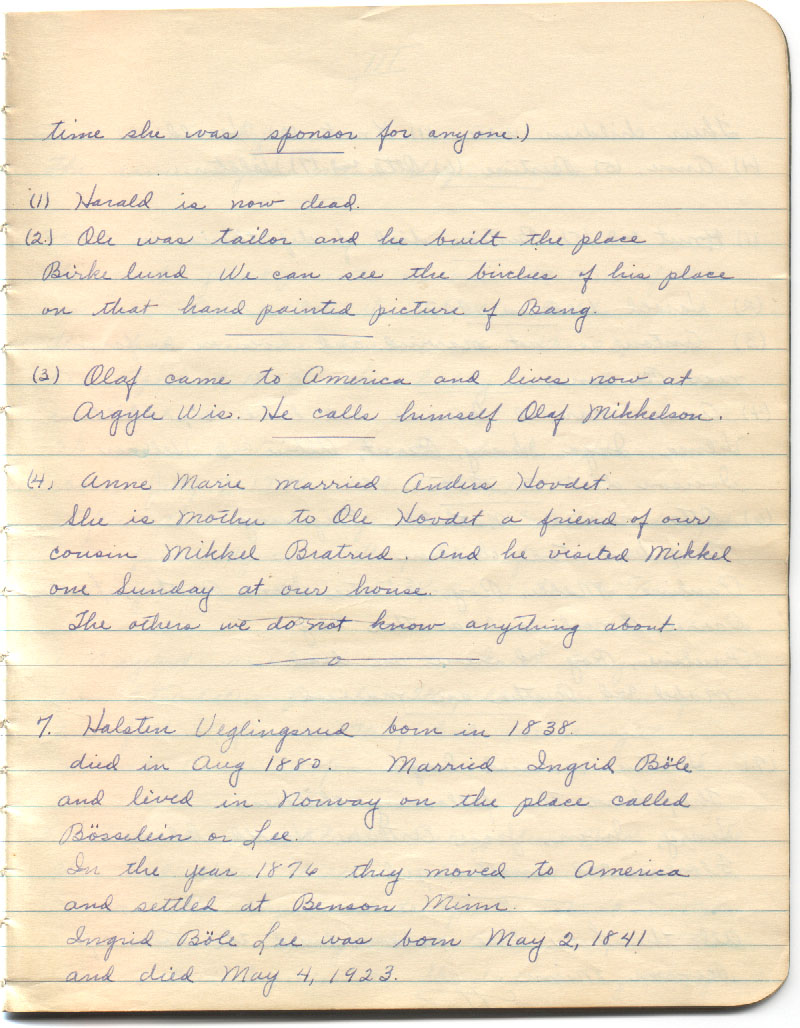 time she was sponsor for anyone.)
(1) Harald is now dead.
(2.) Ole was tailor and he built the place
Birke lund We can see the birches of his place
on that hand painted picture of Bang.
(3) Olaf came to America and lives now at
Argyle Wis. He calls himself Olaf Mikkelson.
(4, Anne Marie married Anders Hovdet.
She is mother to Ole Hovdet a friend of our
cousin Mikkel Bratrud. And he visited Mikkel
one Sunday at our house.
The others we do not know anything about.
7. Halsten Veglingsrud born in 1838.
died in Aug 1880. Married Ingrid Böle
and lived in Norway on the place called
Bösselein or Lee.
In the year 1876 they moved to America
and settled at Benson Minn.
Ingrid Böle Lee was born May 2, 1841
and died May 4, 1923.